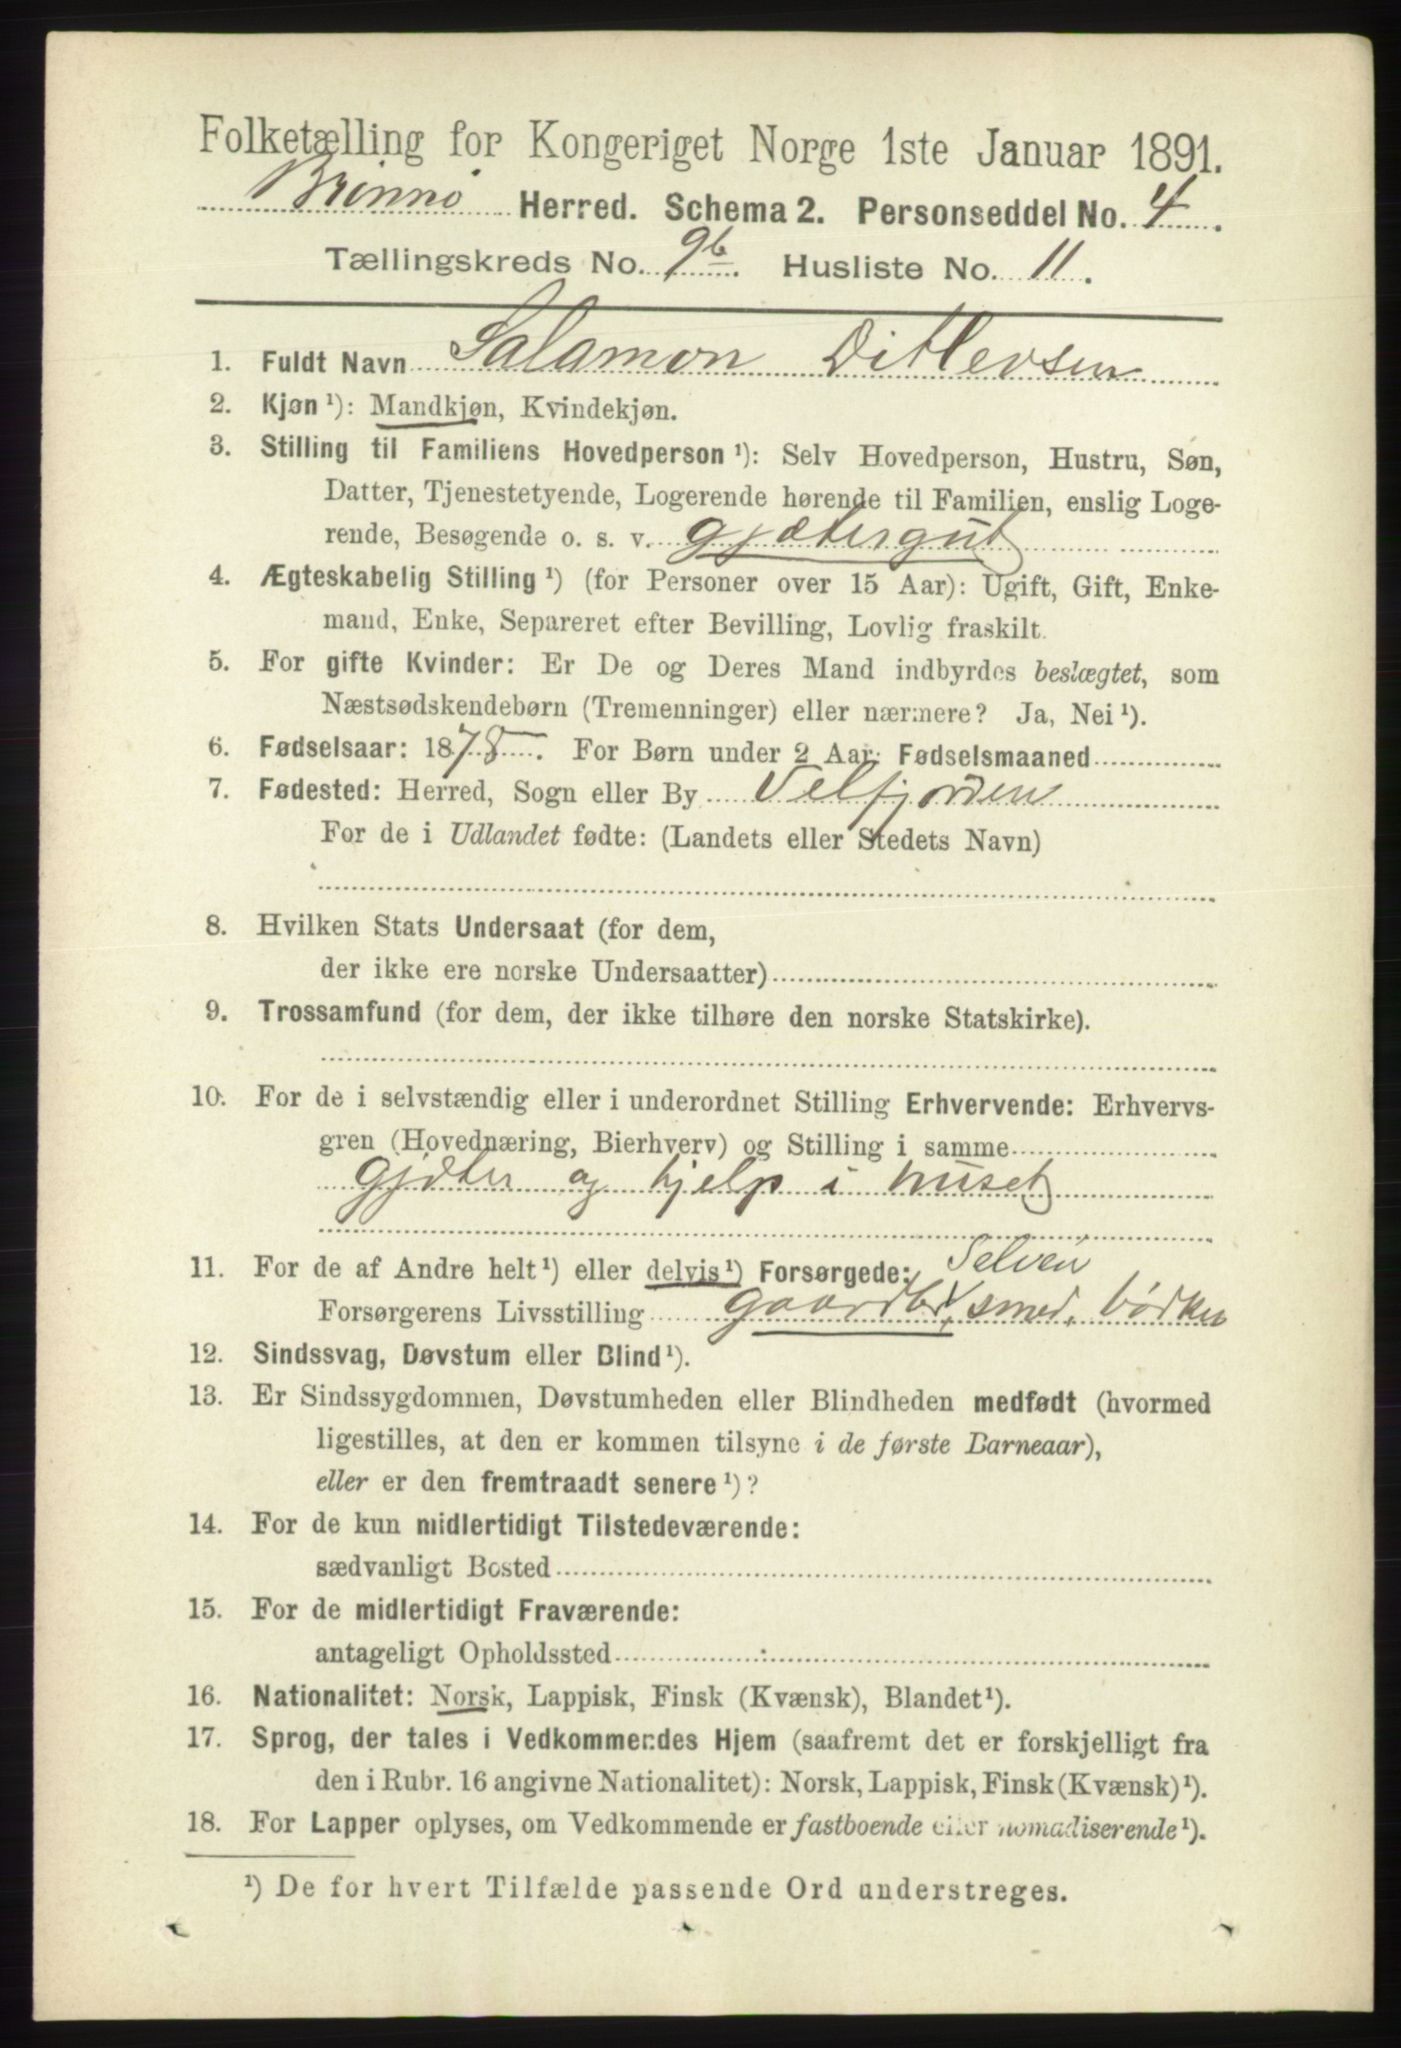 Folketælling for Kongeriget Norge 1ste Januar 1891.
Brønnø Herred. Schema 2. Personseddel No. 4.
Tællingskreds No. 9b. Husliste No. 11.
1. Fuldt Navn Salamon Ditlevsen
2. Kjøn ¹): Mandkjøn, Kvindekjøn.
3. Stilling til Familiens Hovedperson ¹): Selv Hovedperson, Hustru, Søn,
Datter, Tjenestetyende, Logerende hørende til Familien, enslig Loge-
rende, Besøgende o. s. v. gjætergut
4. Ægteskabelig Stilling ¹) (for Personer over 15 Aar): Ugift, Gift, Enke-
mand, Enke, Separeret efter Bevilling, Lovlig fraskilt.
5. For gifte Kvinder: Er De og Deres Mand indbyrdes beslægtet, som
Næstsødskendebørn (Tremenninger) eller nærmere? Ja, Nei ¹).
6. Fødselsaar: 1878. For Børn under 2 Aar: Fødselsmaaned
7. Fødested: Herred, Sogn eller By Velfjorden
For de i Udlandet fødte: (Landets eller Stedets Navn)
8. Hvilken Stats Undersaat (for dem,
der ikke ere norske Undersaatter)
9. Trossamfund (for dem, der ikke tilhøre den norske Statskirke).
10. For de i selvstændig eller i underordnet Stilling Erhvervende: Erhvervs-
gren (Hovednæring, Bierhverv) og Stilling i samme
gjæter og hjelp i huset
11. For de af Andre helt ¹) eller delvis ¹) Forsørgede: Selvei
Forsørgerens Livsstilling gaardbr, smed, bødker
12. Sindssvag, Døvstum eller Blind ¹).
13. Er Sindssygdommen, Døvstumheden eller Blindheden medfødt (hvormed
ligestilles, at den er kommen tilsyne i de første Barneaar),
eller er den fremtraadt senere ¹)?
14. For de kun midlertidigt Tilstedeværende:
sædvanligt Bosted
15. For de midlertidigt Fraværende:
antageligt Opholdssted
16. Nationalitet: Norsk, Lappisk, Finsk (Kvænsk), Blandet ¹).
17. Sprog, der tales i Vedkommendes Hjem (saafremt det er forskjelligt fra
den i Rubr. 16 angivne Nationalitet): Norsk, Lappisk, Finsk (Kvænsk) ¹).
18. For Lapper oplyses, om Vedkommende er fastboende eller nomadiserende ¹).
¹) De for hvert Tilfælde passende Ord understreges.